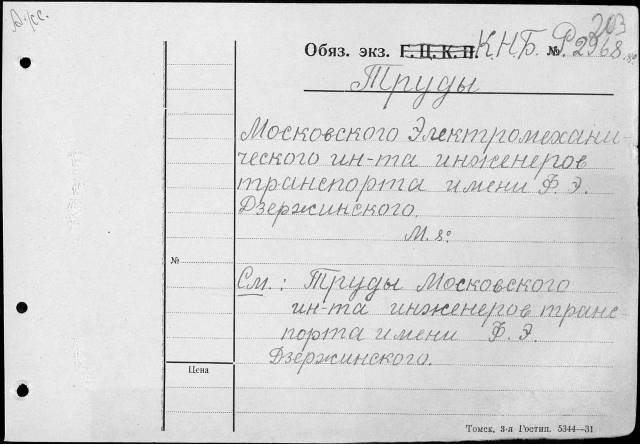 203
Обяз. экз. Г. Ц. К. П. К.Н.Б. № Р. 2968
Труды
Московского Электромехани-
ческого ин-та инженеров
транспорта имени Ф. Э.
Дзержинского.
М. 8°
№
См.: Труды Московского
ин-та инженеров транс-
порта имени Ф. Э.
Дзержинского.
Цена
Томск, 3-я Гостип. 5344—31